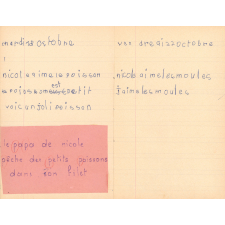 mardi 18 octobre
nicolanimelepoisson
lepoissonestpetit
voiciunjolipoisson
le papa de nicole
pêche des petits poissons
dans son filet
vendredi 21 octobre
nicoleaimelesmoules
j'aimelesmoules